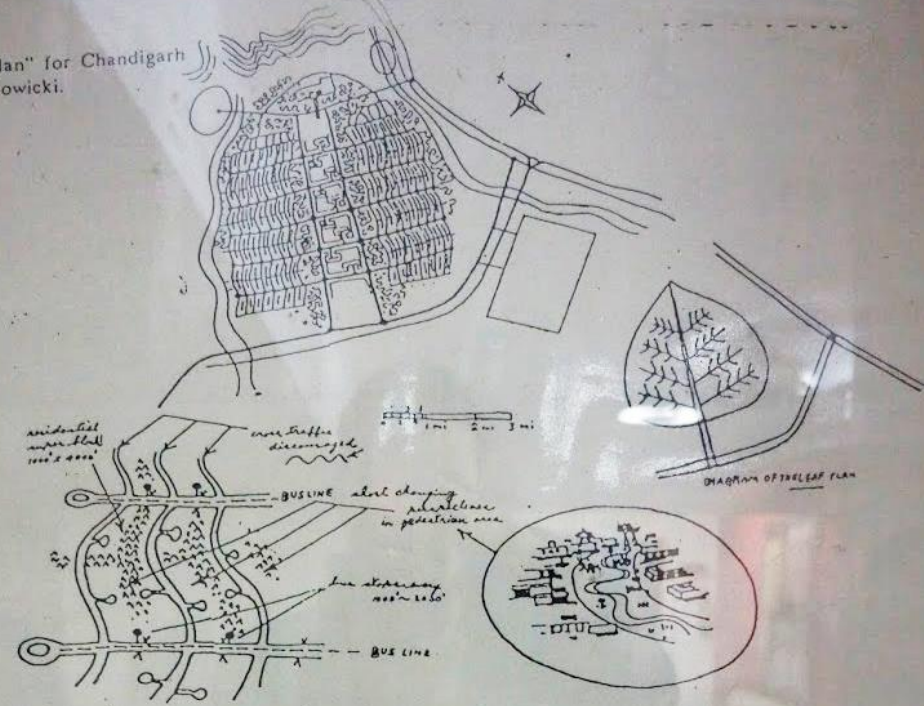 lan" for Chandigarh
owicki.
0
1 mi
2 mi
3 mi
DIAGRAM OF THE LEAF PLAN
residential
super block
1000' x 4000'
cross traffic
discouraged
BUS LINE
short changing
in pedestrian area
bus stop every
BUS LINE